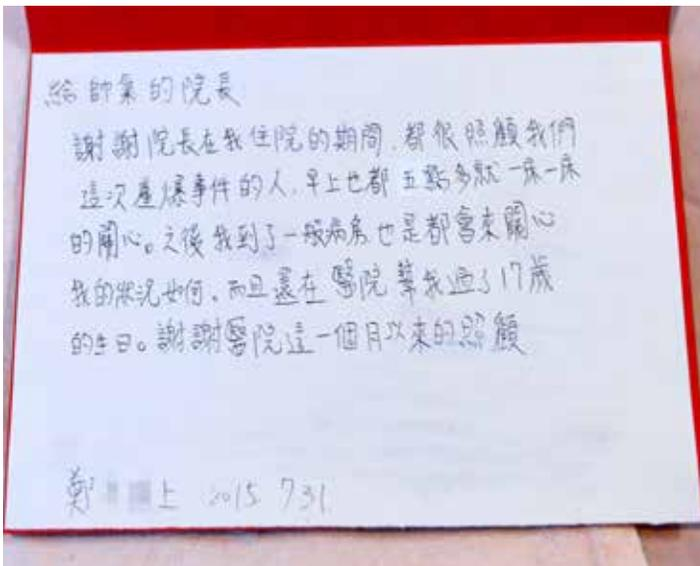 給帥氣的院長
謝謝院長在我住院的期間,都很照顧我們
這次塵爆事件的人,早上也都五點多就一床一床
的關心。之後我到了一般病房也是都會來關心
我的狀況如何,而且還在醫院幫我過了17歲
的生日。謝謝醫院這一個月以來的照顧
鄭 上 2015. 7.31.